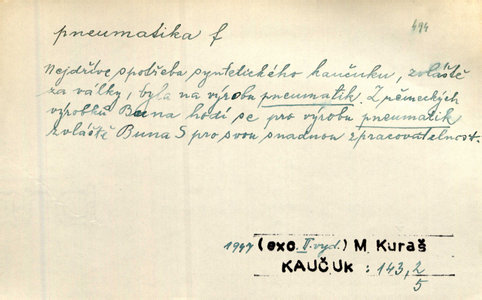 pneumatika f
494
Nejdříve spotřeba syntetického kaučuku, zvláště
za války, byla na výrobu pneumatik. Z německých
výrobků Buna hodí se pro výrobu pneumatik
zvláště Buna S pro svou snadnou zpracovatelnost.
1947 (exc. II. vyd.) M. Kuraš
KAUČUK : 143, 2/5